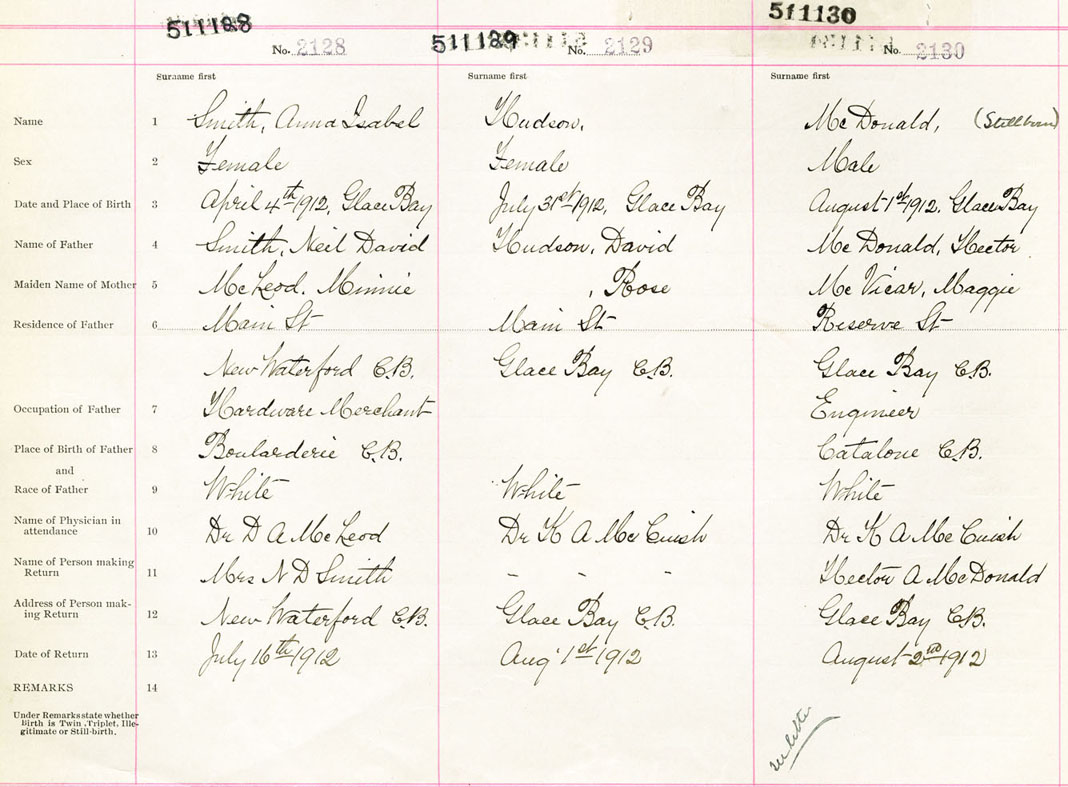 511188 511189 511130
No. 2128 No. 2129 No. 2130
Surname first Surname first Surname first
Name 1 Smith, Anna Isabel Hudson, McDonald, (Stillborn)
Sex 2 Female Female Male
Date and Place of Birth 3 April 4th 1912, Glace Bay July 31st 1912, Glace Bay August 1st 1912, Glace Bay
Name of Father 4 Smith, Neil David Hudson, David McDonald, Hector
Maiden Name of Mother 5 McLeod, Minnie , Rose McVicar, Maggie
Residence of Father 6 Main St Main St Reserve St
New Waterford C.B. Glace Bay C.B. Glace Bay C.B.
Occupation of Father 7 Hardware Merchant Engineer
Place of Birth of Father 8 Boularderie C.B. Catalone C.B.
and
Race of Father 9 White White White
Name of Physician in attendance 10 Dr D A McLeod Dr K A McCuish Dr K A McCuish
Name of Person making Return 11 Mrs N D Smith - - - Hector A McDonald
Address of Person mak-
ing Return 12 New Waterford C.B. Glace Bay C.B. Glace Bay C.B.
Date of Return 13 July 16th 1912 Aug 1st 1912 August 2nd 1912
REMARKS 14
Under Remarks state whether
Birth is Twin, Triplet, Ille-
gitimate or Still-birth.